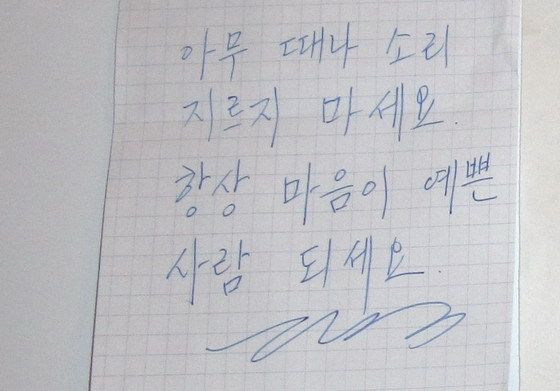 아무 때나 소리
지르지 마세요.
항상 마음이 예쁜
사람 되세요.